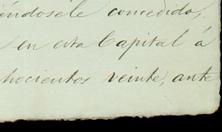 iéndosele concedido,
en esta Capital á
hocientos veinte, ante